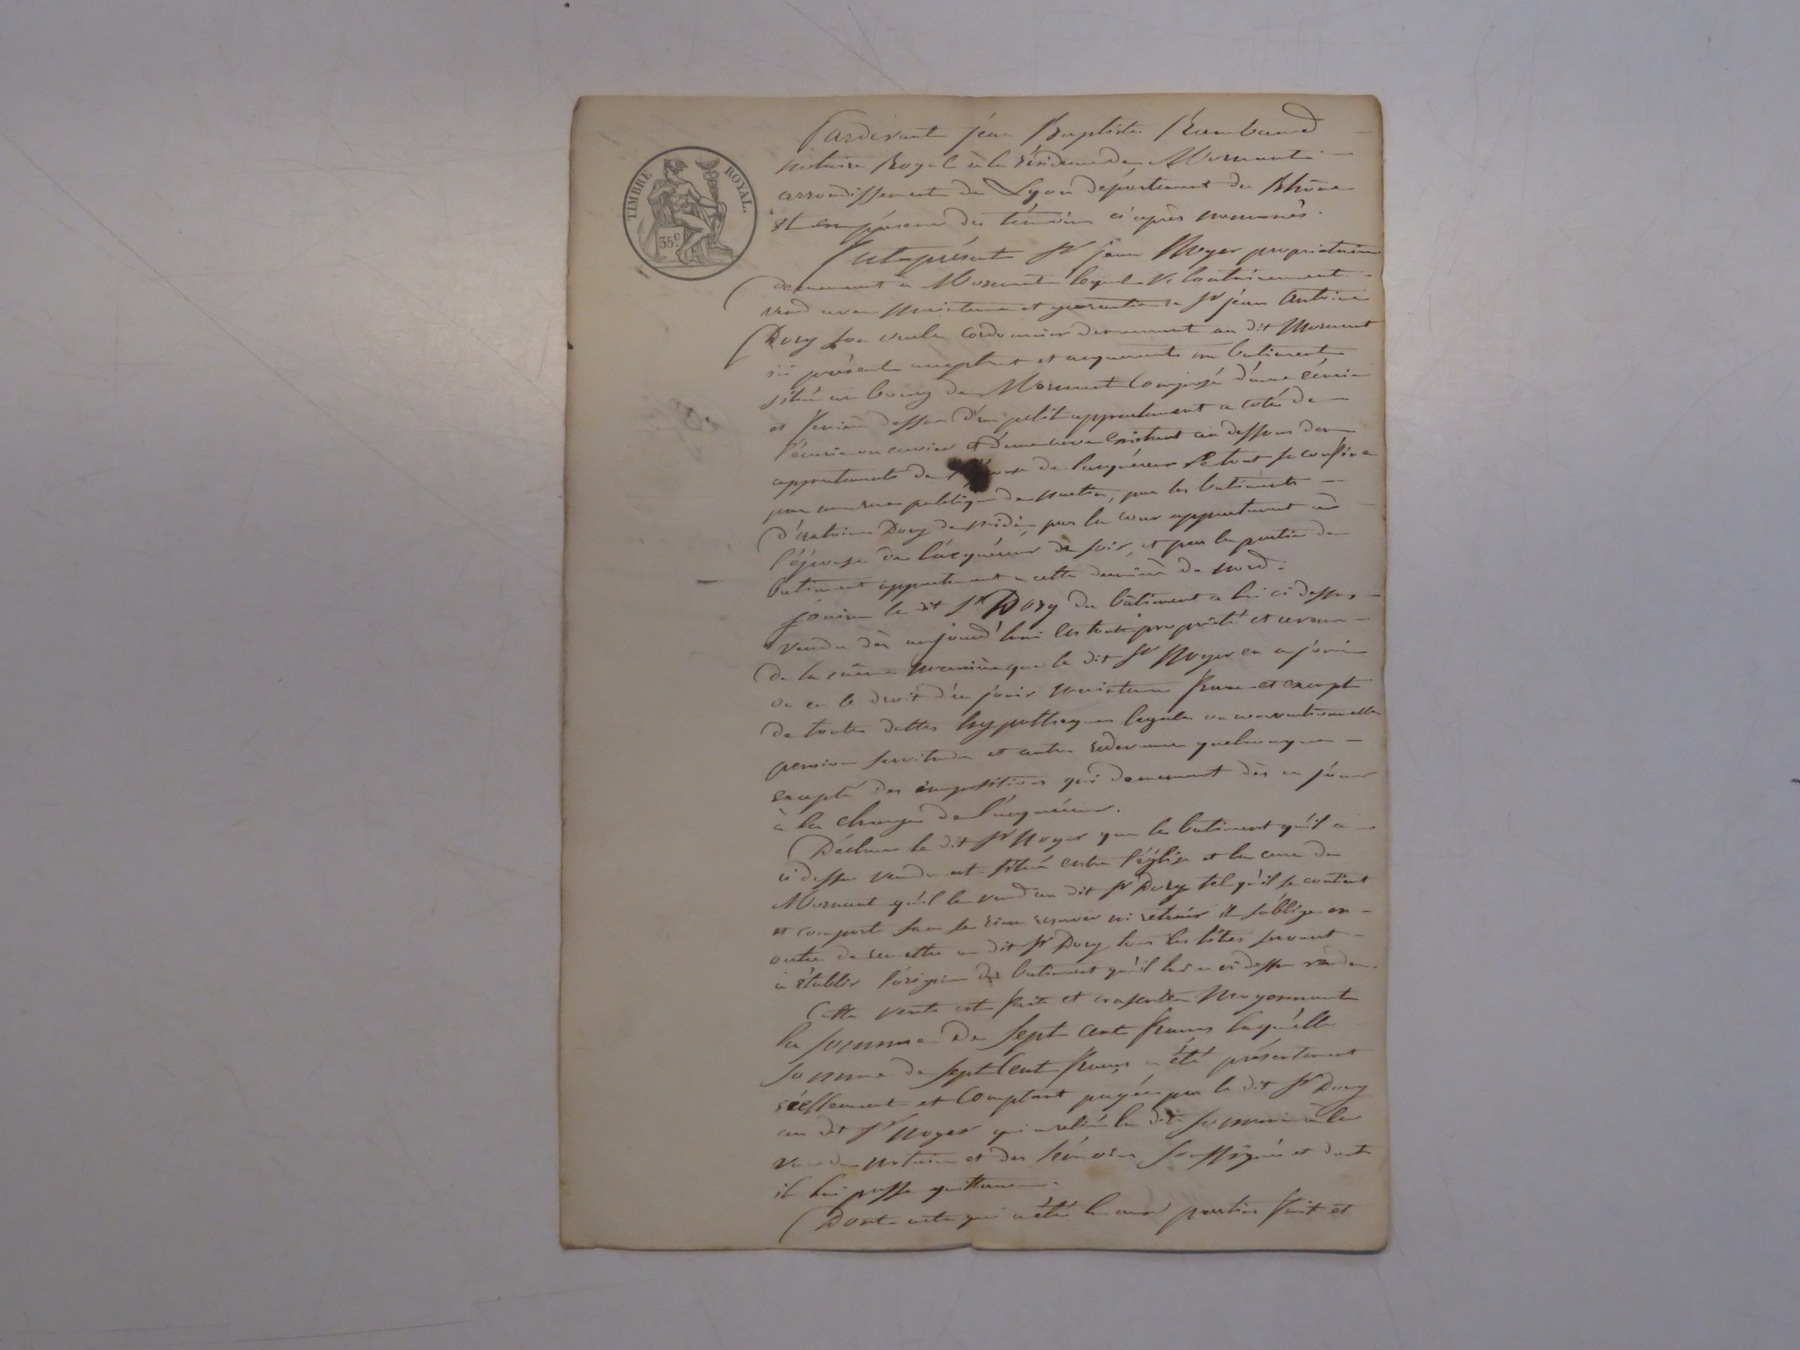 TIMBRE ROYAL.
35c.
Pardevant jean Baptiste Rambaud
notaire Royal à la résidence de Mornant
arrondissement de Lyon département du Rhône
Et en présence des témoins ci après nommés.
Fut présent Sr jean Noyer propriétaire
demeurant a Mornant lequel Volontairement
vend avec maintenue et garantie a Sr jean Antoine
Dory cordonnier demeurant au dit Mornant
ici présent acceptant et acquerant un batiment
situé au bourg de Mornant Composé d'une écurie
et feniere dessus d'un petit appartement a coté de
l'écurie et d'une cave Existant au dessous des
appartements de l'épouse de l'acquéreur Le tout se confine
par une rue publique de matin, par les batiments
d'Antoine Dory de midi, par la cour appartenant a
l'épouse de l'acquéreur de soir, et par la partie de
batiment appartenant a cette dernière de nord.
jouira le dit Sr Dory du bâtiment a lui ci dessus
vendu dès aujourd'hui en toute propriété et
de la même manière que le dit Sr Noyer en a joui
ou eu le droit d'en jouir maintenu franc et exempt
de toutes dettes hypothèques legales ou conventionnelles
pension servitude et autre redevance quelconque
excepté des impositions qui demeurent dès ce jour
à la charge de l'acquéreur.
Déclare le dit Sr Noyer que le batiment qu'il a
ci dessus vendu est situé entre l'église et la cure de
Mornant qu'il le vend au dit Sr Dory tel qu'il se contient
et comporte sans se rien reserver ni retenir il s'oblige en
outre de remettre au dit Sr Dory tous les titres servant
a établir l'origine du batiment qu'il lui a ci dessus vendu.
Cette vente est faite et consentie Moyennant
la somme De Sept Cent francs laquelle
somme de sept Cent francs a été présentement
réellement et Comptant payée par le dit Sr Dory
au dit Sr Noyer qui a retiré la dite somme à la
vue du notaire et des témoins Soussignés et dont
il lui passe quittance.
Dont acte qui a été lu aux parties Fait et